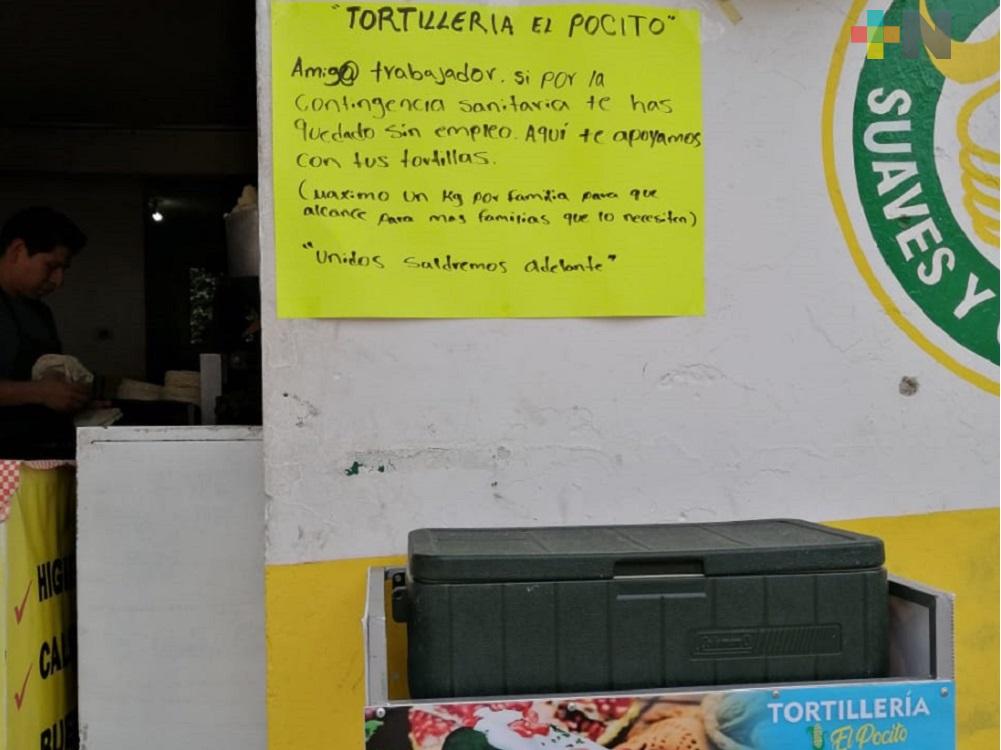 +N
"TORTILLERIA EL POCITO"
Amig@ trabajador. si por la
contingencia sanitaria te has
quedado sin empleo. AQUÍ te apoyamos
con tus tortillas.
(Maximo un Kg por familia para que
alcance para mas familias que lo necesiten)
"Unidos saldremos adelante"
SUAVES Y
Coleman
TORTILLERÍA
El Pocito